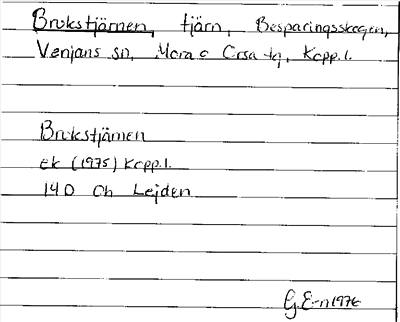 Brukstjärnen, tjärn, Besparingsskogen,
Venjans sn, Mora o Orsa tg, Kopp.l.
Brukstjärnen
ek (1975) Kopp.l.
14D Ch Lejden
G.E-n 1976